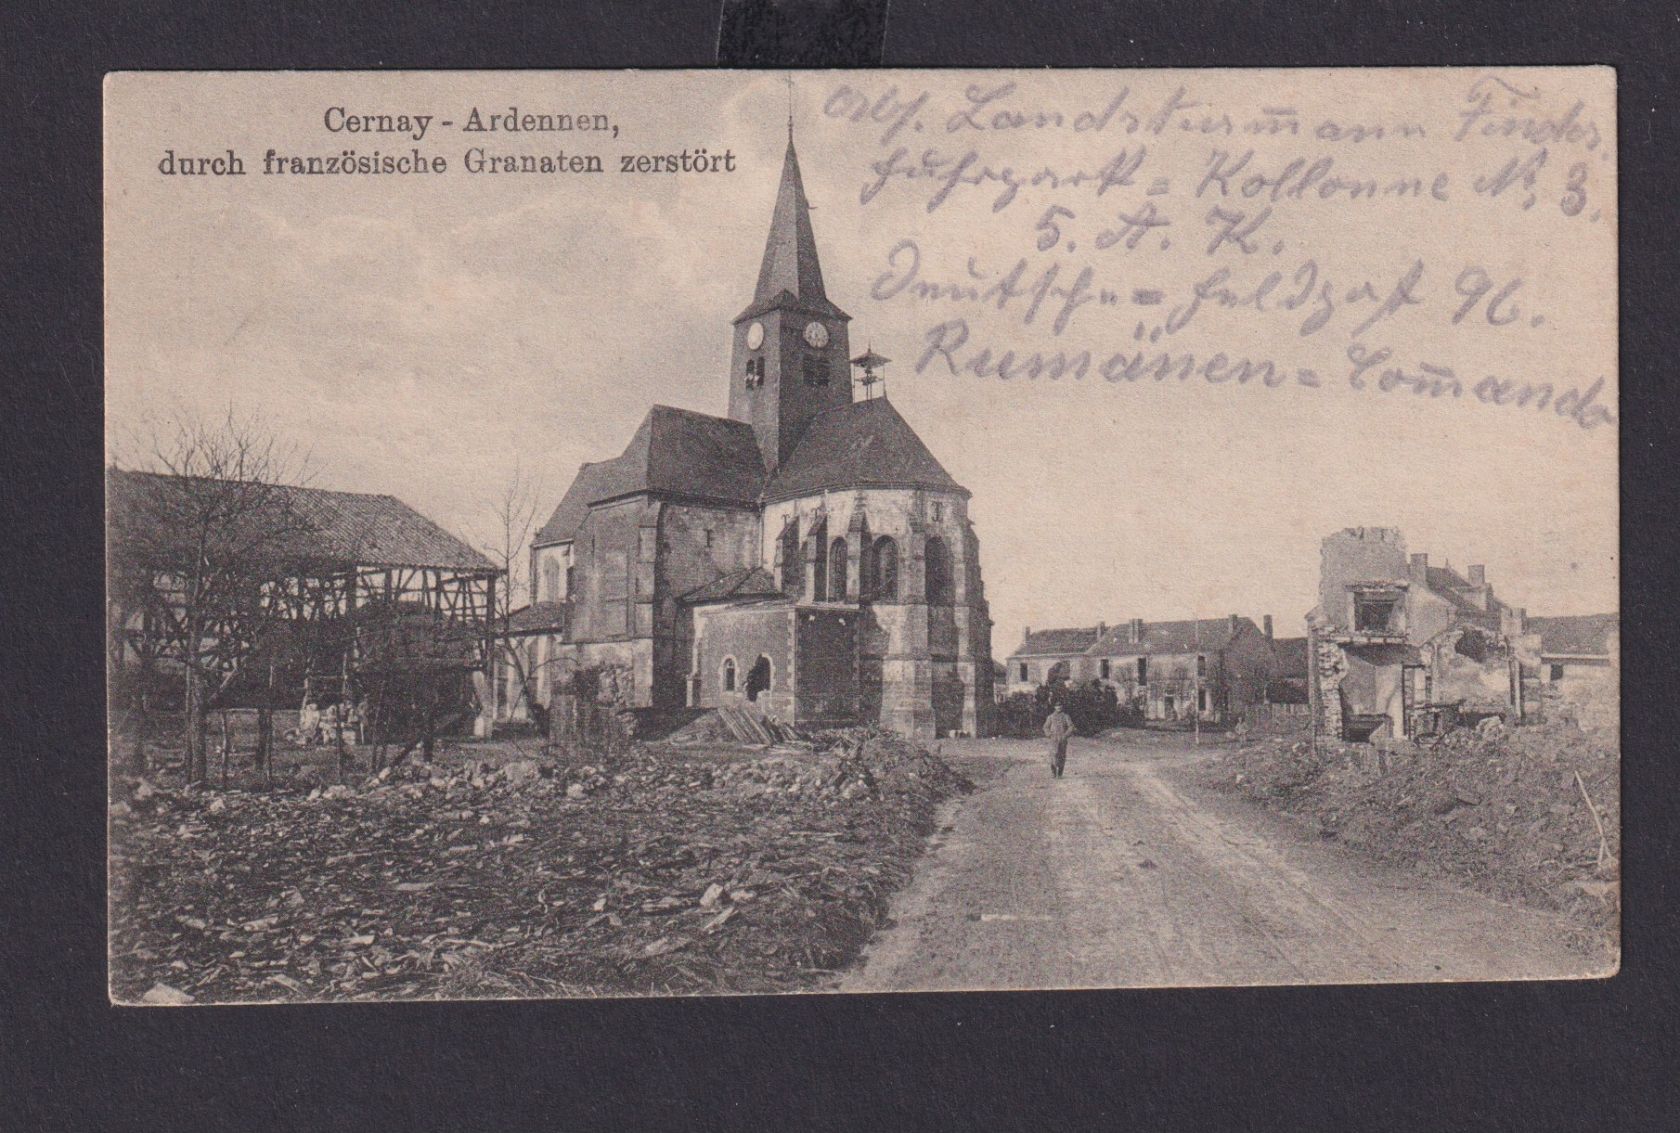 Cernay - Ardennen,
durch französische Granaten zerstört
Abs. Landsturm̅ann Finder.
Fuhrpark = Kollonne No. 3.
5. A. K.
Deutsche = Feldpost 96.
Rumänen = Com̅ando